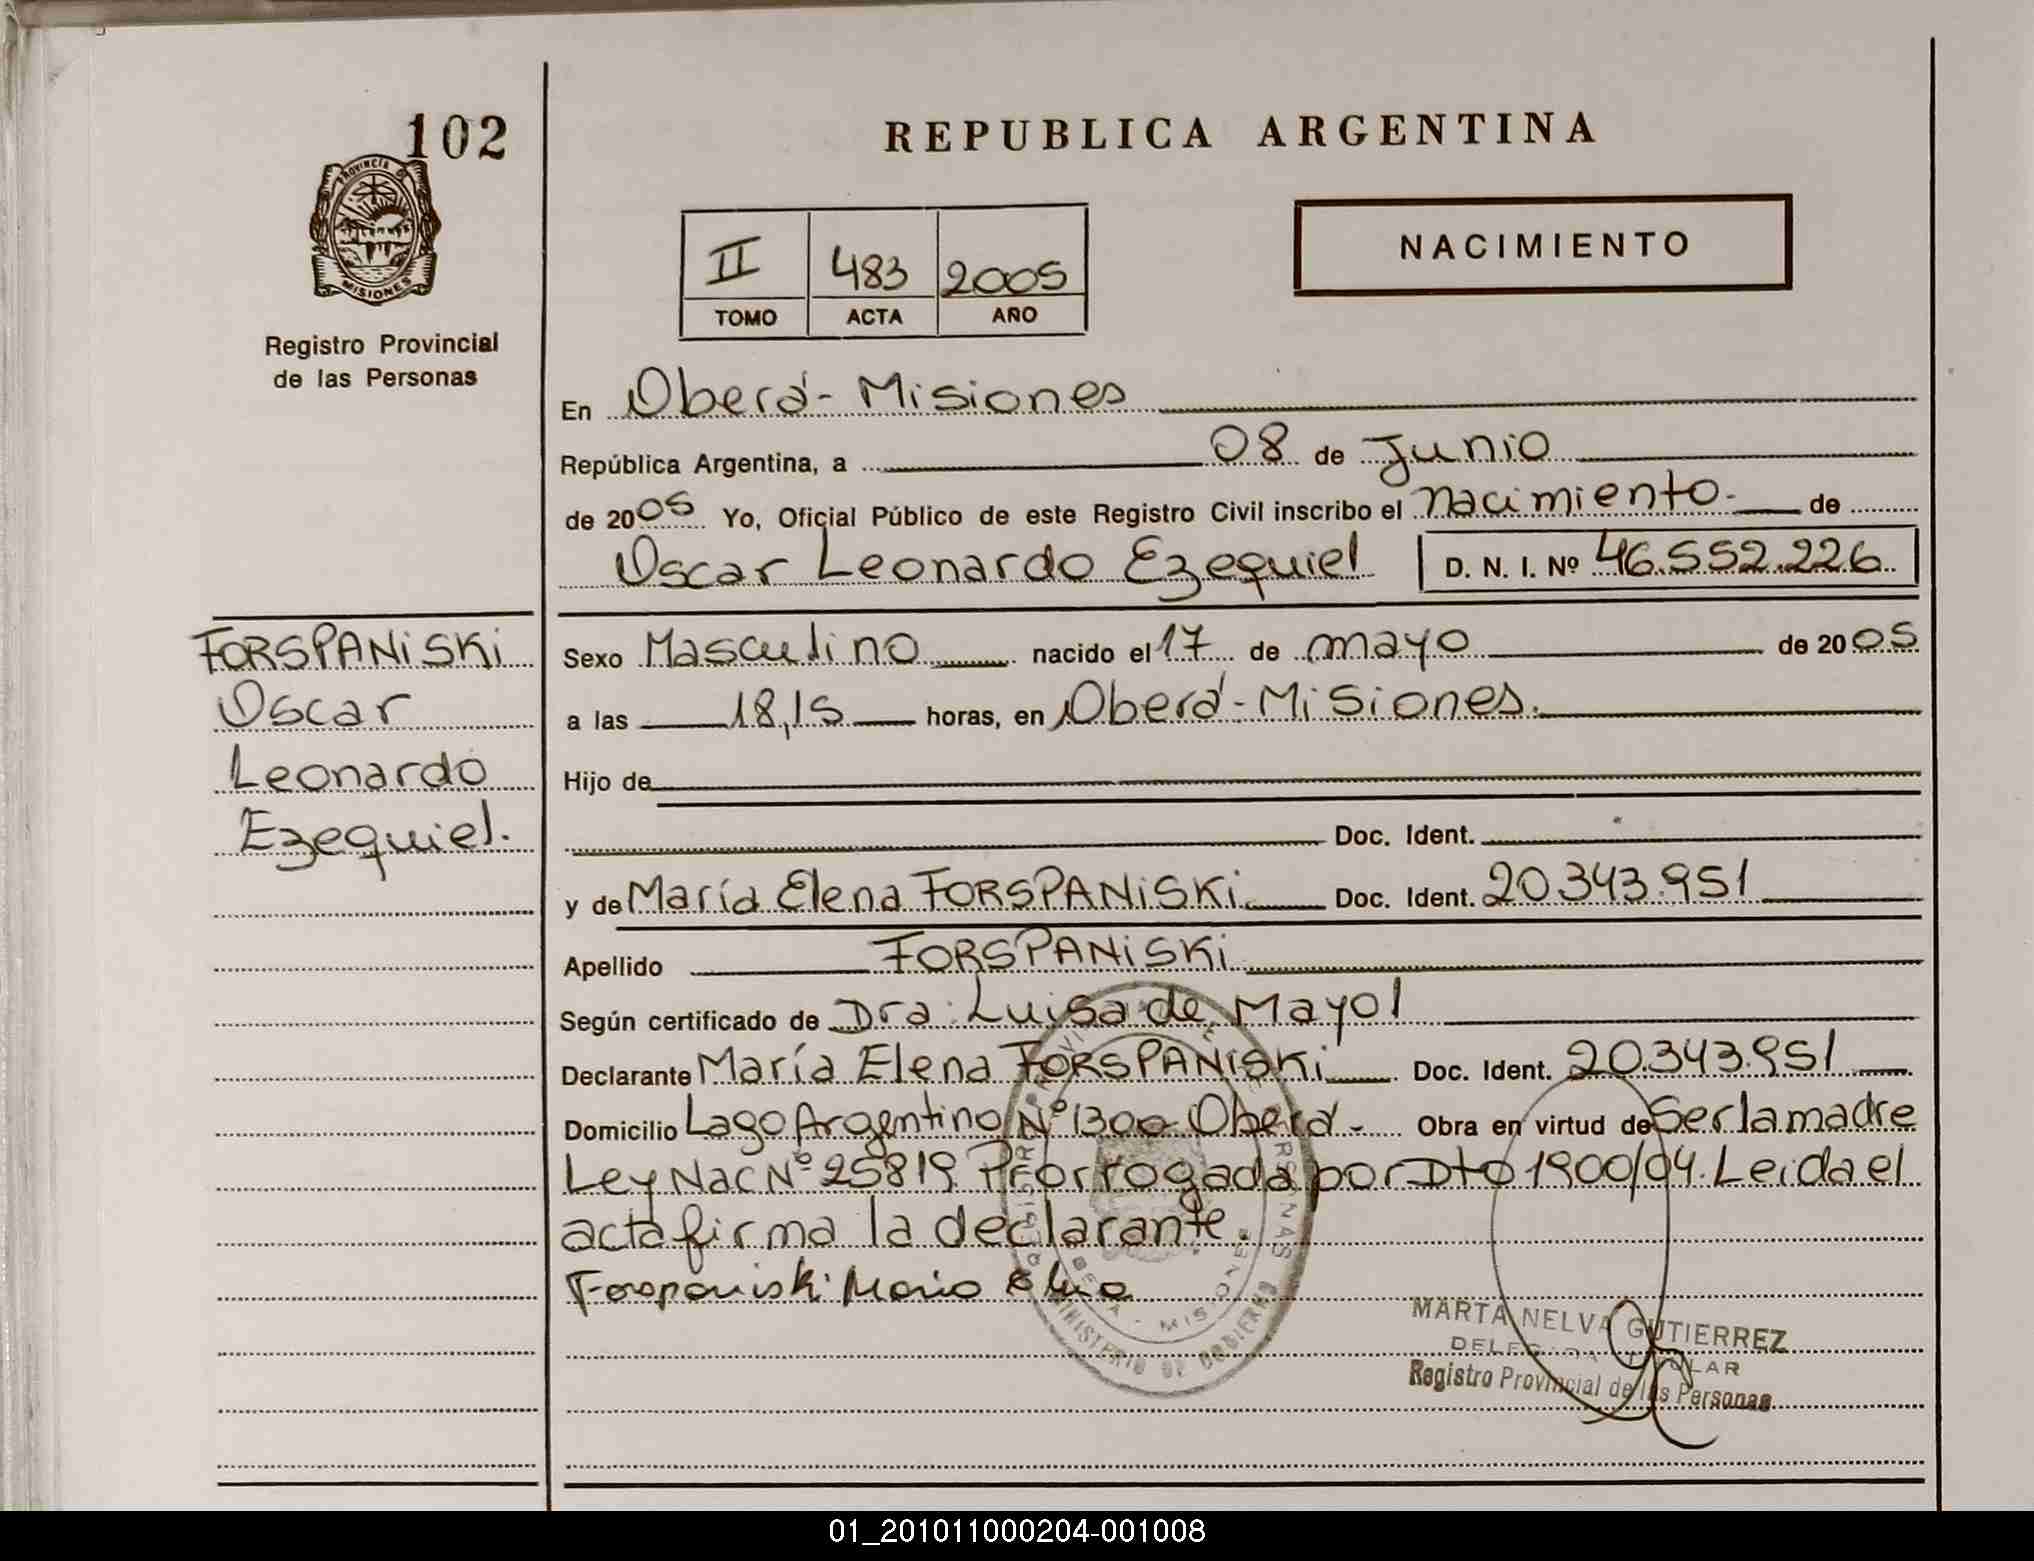 102
REPUBLICA ARGENTINA
PROVINCIA DE
MISIONES
NACIMIENTO
II 483 2005
TOMO ACTA AÑO
Registro Provincial
de las Personas
En Oberá - Misiones
República Argentina, a 08 de Junio
de 2005 Yo, Oficial Público de este Registro Civil inscribo el nacimiento. de
Oscar Leonardo Ezequiel D. N. I. Nº 46.552.226
FORSPANiSKi
Oscar
Leonardo
Ezequiel.
Sexo Masculino nacido el 17 de mayo de 2005
a las 18,15 horas, en Oberá - Misiones.
Hijo de
Doc. Ident.
y de María Elena FORSPANiSKi. Doc. Ident. 20.343.951
Apellido FORSPANiSKi
Según certificado de Dra. Luisa de Mayol
Declarante María Elena FORSPANiSKi Doc. Ident. 20.343.951
Domicilio Lago Argentino Nº 1300 Oberá - Obra en virtud de Ser la madre
Ley Nac Nº 25819 Prorrogada por Dto 1900/04. Leida el
acta firma la declarante.
Forspaniski Maria Elena
MINISTERIO DE GOBIERNO
MARTA NELVA GUTIERREZ
DELEGADA TITULAR
Registro Provincial de las Personas
01_201011000204-001008